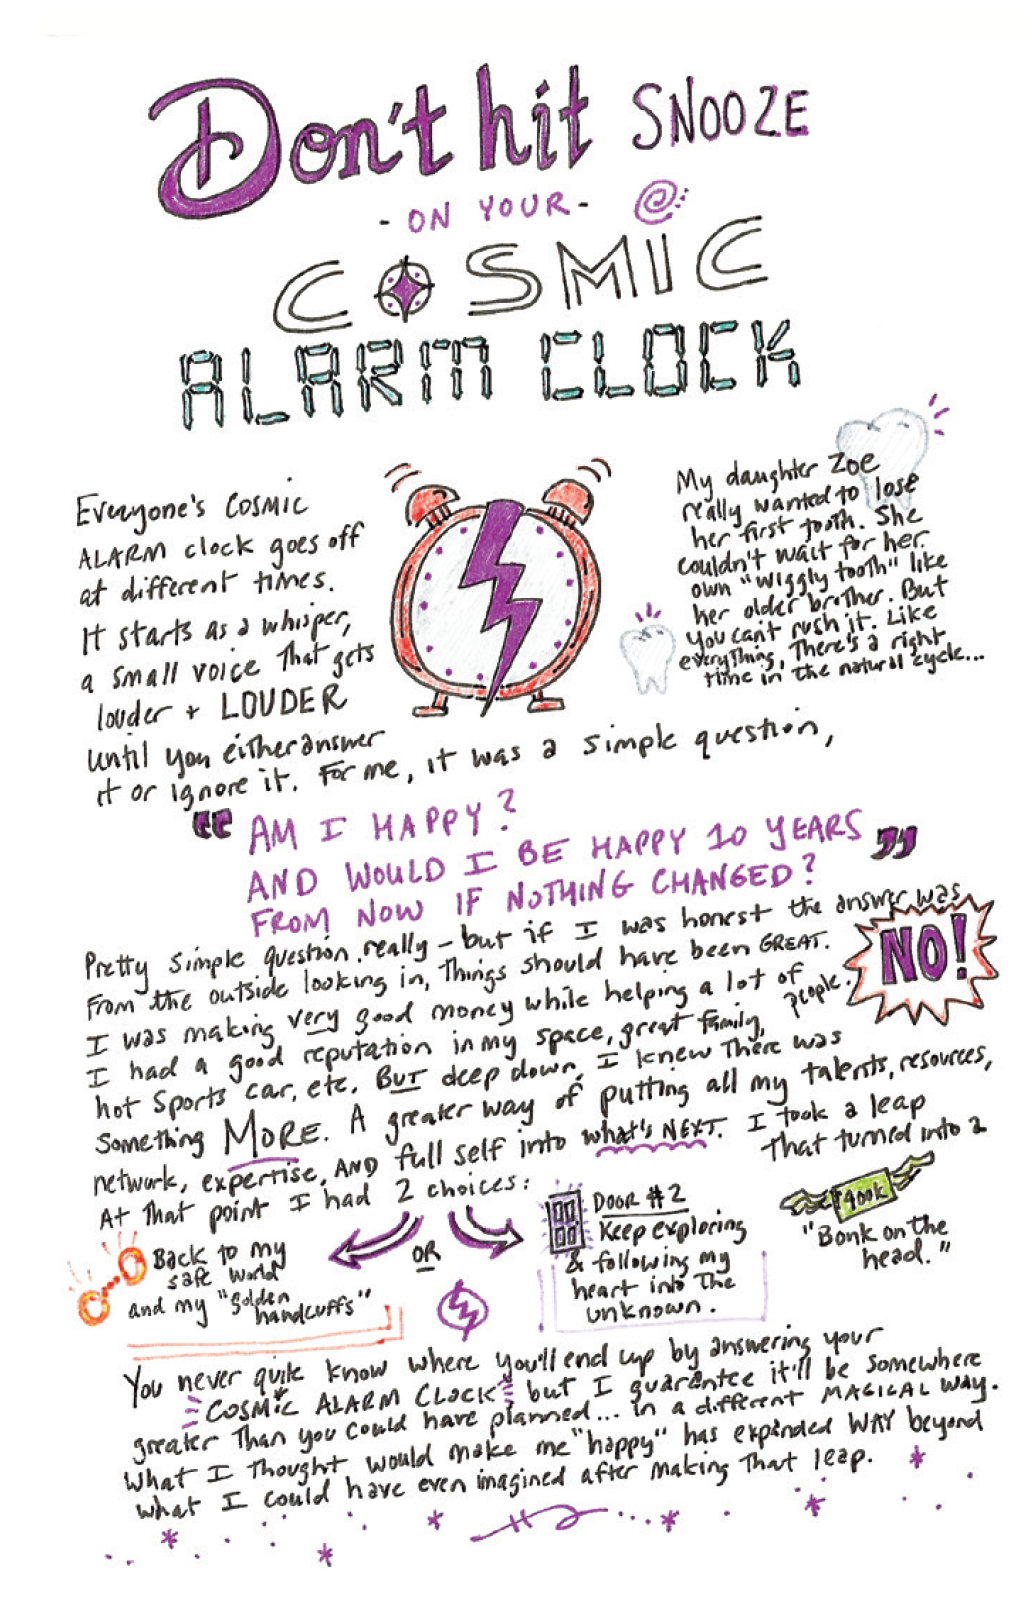 Don't hit SNOOZE
- ON YOUR -
COSMIC
ALARM CLOCK
Everyone's COSMIC
ALARM clock goes off
at different times.
It starts as a whisper,
a small voice that gets
louder + LOUDER
until you either answer
it or ignore it. For me, it was a simple question,
My daughter Zoe
really wanted to lose
her first tooth. She
couldn't wait for her
own "wiggly tooth" like
her older brother. But
you can't rush it. Like
everything, There's a right
time in the natural cycle...
"AM I HAPPY?
AND WOULD I BE HAPPY 10 YEARS
FROM NOW IF NOTHING CHANGED?"
Pretty simple question really – but if I was honest the answer was
NO!
From the outside looking in, Things should have been GREAT.
I was making very good money while helping a lot of people.
I had a good reputation in my space, great family,
hot sports car, etc. BUT deep down, I knew There was
something MORE. A greater way of putting all my talents, resources,
network, expertise, AND full self into what's NEXT. I took a leap
That turned into a
400k
"Bonk on the
head."
At that point I had 2 choices:
Back to my
safe world
and my "golden
handcuffs"
OR
DOOR #2
Keep exploring
& following my
heart into The
unknown.
You never quite know where you'll end up by answering your
COSMIC ALARM CLOCK but I guarantee it'll be somewhere
greater Than you could have planned... in a different MAGICAL WAY.
What I Thought would make me "happy" has expanded WAY beyond
what I could have even imagined after making That leap.